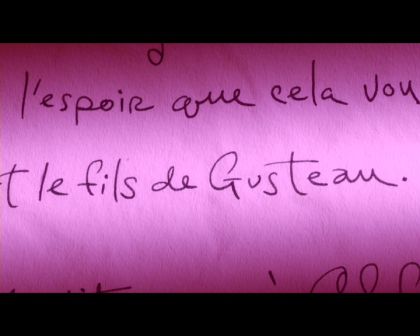 l'espoir que cela vou
t le fils de Gusteau.